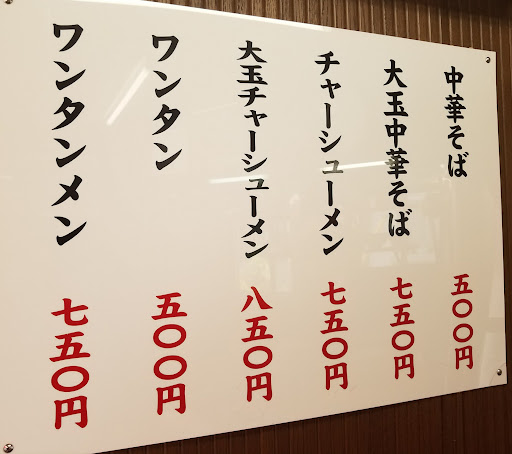 中華そば 五〇〇円
大玉中華そば 七五〇円
チャーシューメン 七五〇円
大玉チャーシューメン 八五〇円
ワンタン 五〇〇円
ワンタンメン 七五〇円